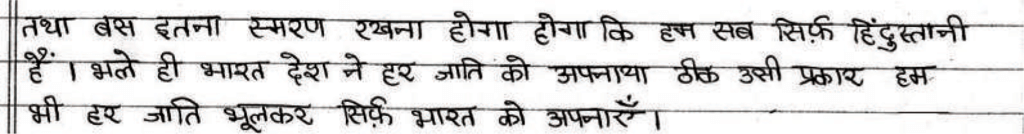 तथा बस इतना स्मरण रखना होगा होगा कि हम सब सिर्फ़ हिंदुस्तानी
हैं । भले ही भारत देश ने हर जाति को अपनाया ठीक उसी प्रकार हम
भी हर जाति भूलकर सिर्फ़ भारत को अपनाएँ ।